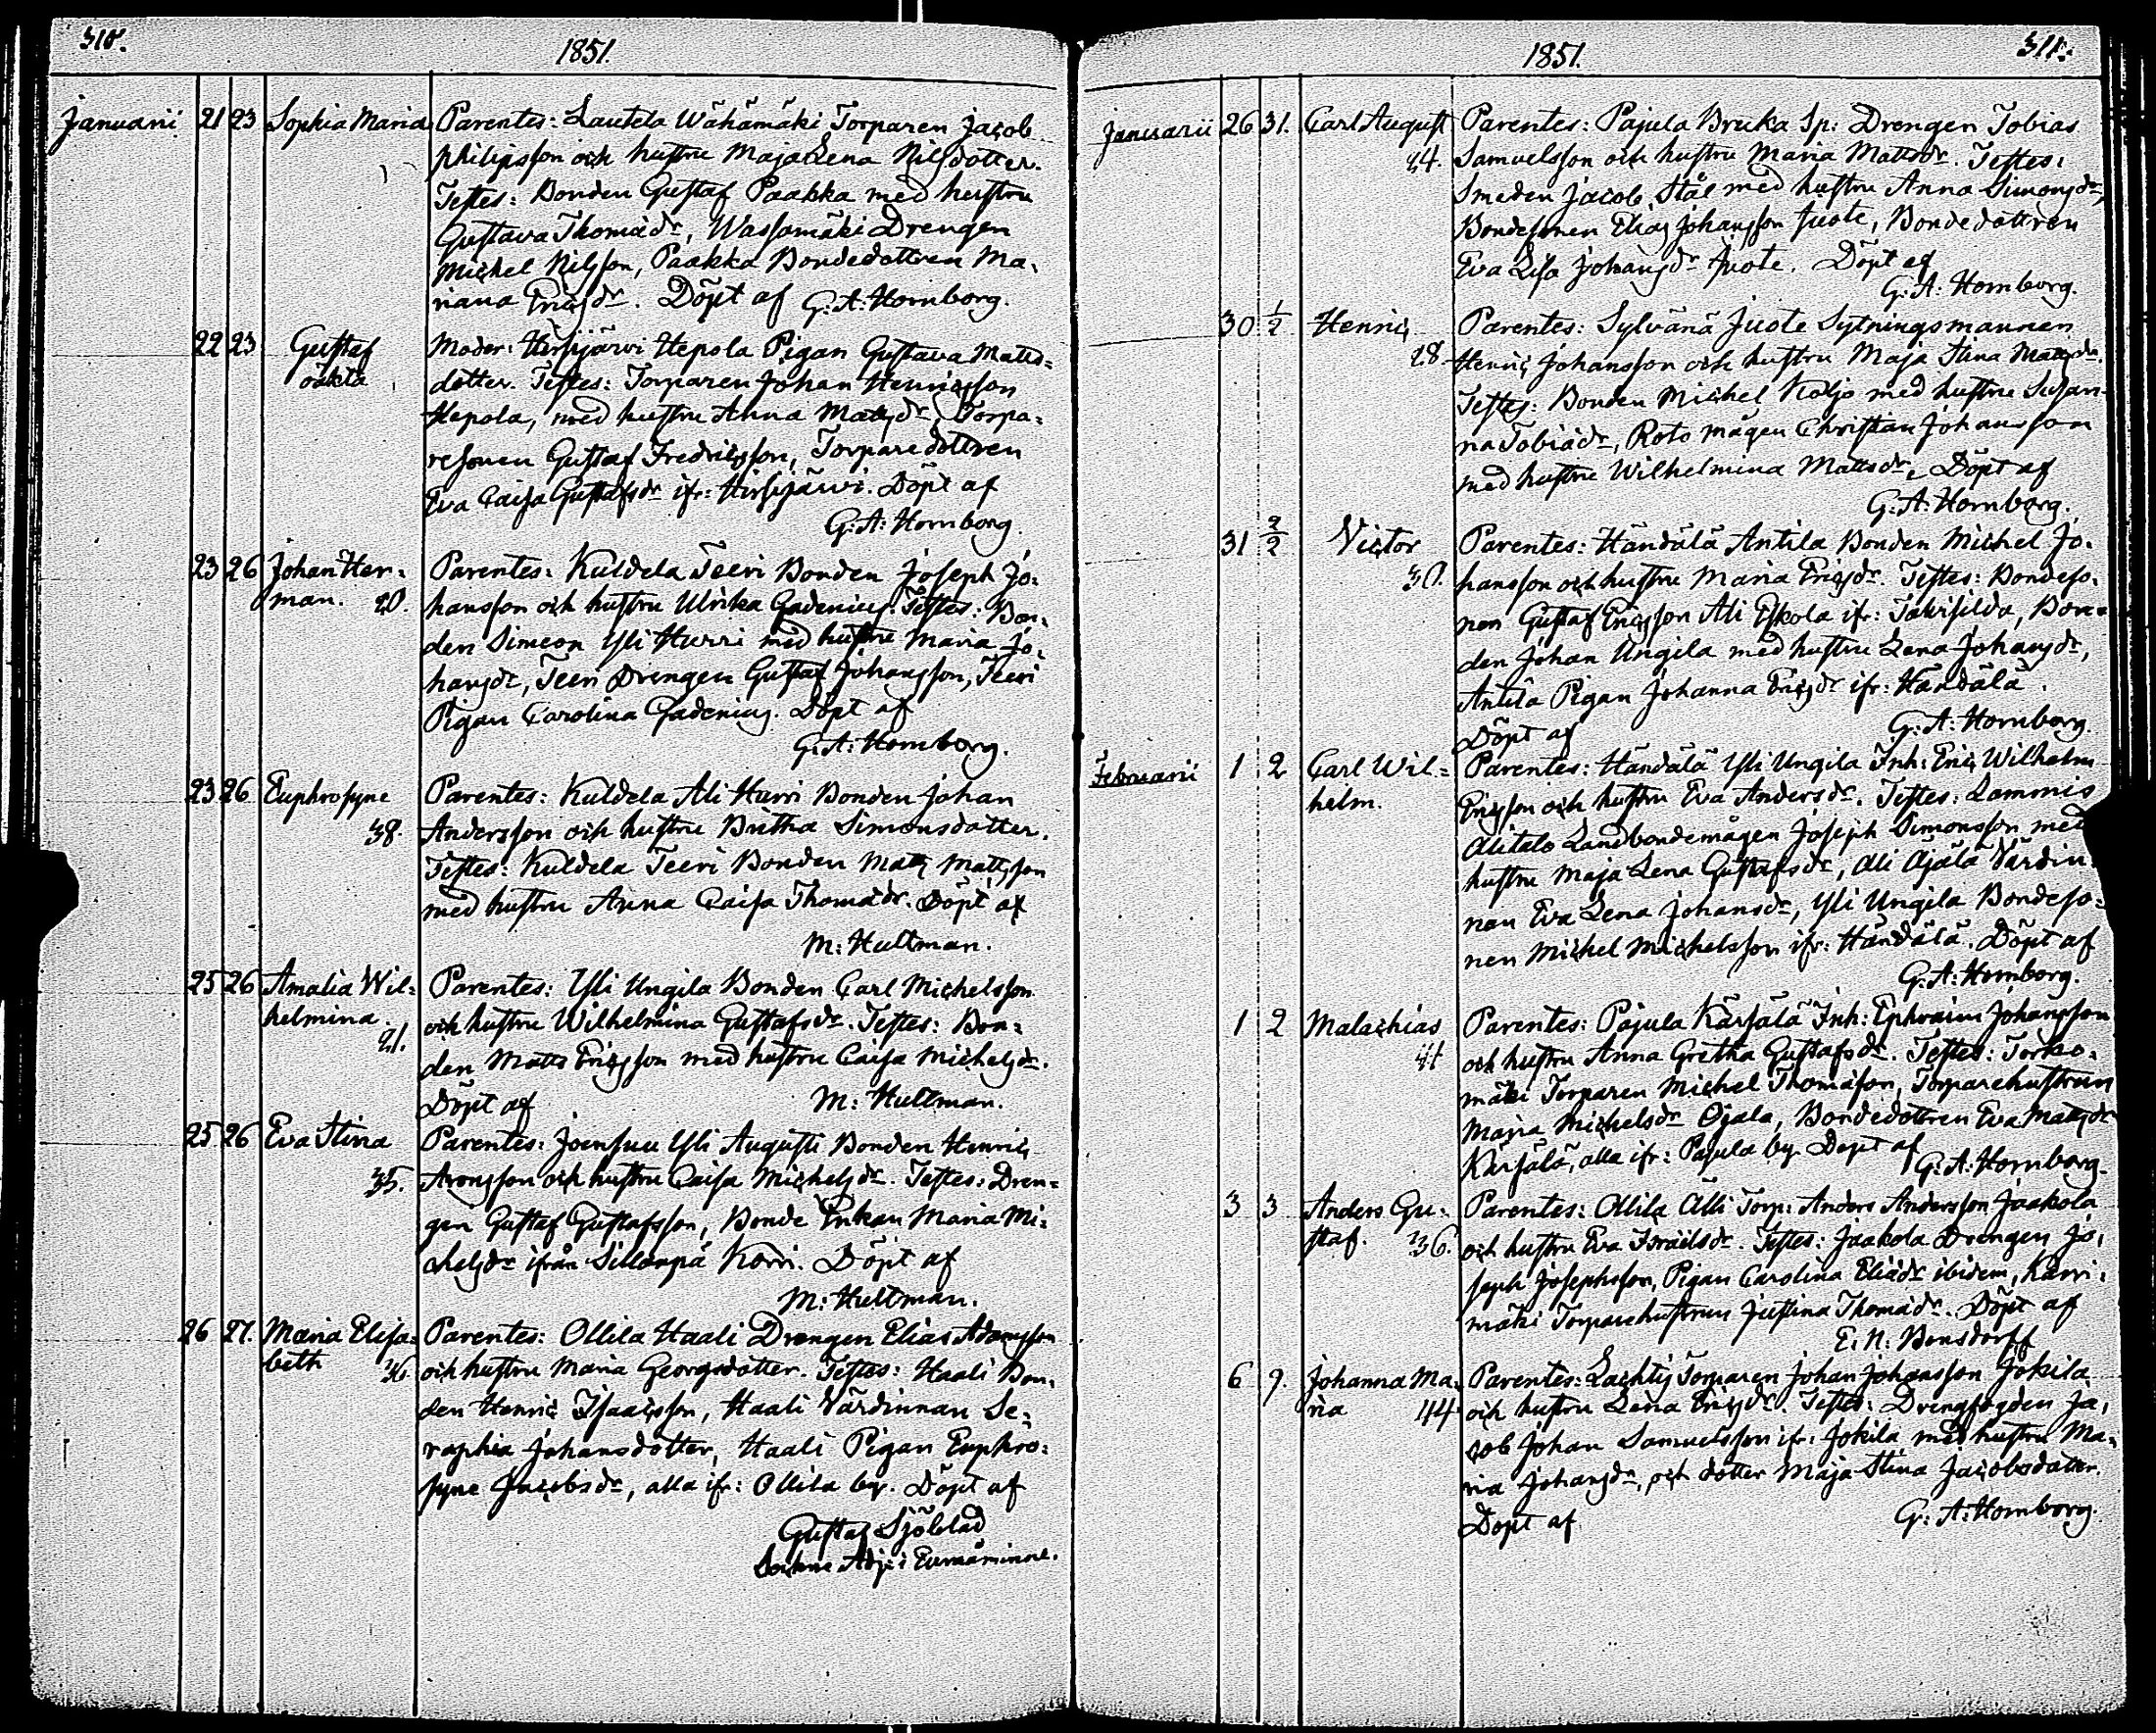 310.
1851.
Januarii 21 23 Sophia Maria Parentes: Lautela Wähämäki Torparen Jacob
Philipsson och hustru Maja Lena Nilsdotter.
Testes: Bonden Gustaf Paakka med hustru
Gustava Thomædr, Wassamäki Drengen
Michel Nilsson, Paakka Bondedottren Ma-
riana Ericsdr. Döpt af G: A: Hornborg.
22 23 Gustaf Moder: Hirsijärvi Hepola Pigan Gustava Matts-
oäkta dotter. Testes: Torparen Johan Henricsson
Hepola, med hustru Anna Mattsdr, Torpa-
resonen Gustaf Fredricsson, Torparedottren
Eva Caisa Gustafsdr ifr: Hirsijärvi. Döpt af
G: A: Hornborg.
23 26 Johan Her- Parentes: Kuldela Teeri Bonden Joseph Jo-
man. 20. hansson och hustru Ulrika Gadenius. Testes: Bon-
den Simeon Yli Hurri med hustru Maria Jo-
hansdr, Teeri Drengen Gustaf Johansson, Teeri
Pigan Carolina Gadenius. Döpt af
G: A: Hornborg.
23 26 Euphrosyne Parentes: Kuldela Ali Hurri Bonden Johan
38. Andersson och hustru Britha Simonsdotter.
Testes: Kuldela Teeri Bonden Matts Mattsson
med hustru Anna Caisa Thomædr. Döpt af
M: Hultman.
25 26 Amalia Wil- Parentes: Yli Ungila Bonden Carl Michelsson
helmina. 21. och hustru Wilhelmina Gustafsdr. Testes: Bon-
den Matts Ericsson med hustru Caisa Michelsdr.
Döpt af M: Hultman.
25 26 Eva Stina Parentes: Joensuu Yli Augusti Bonden Henric
35. Aronsson och hustru Caisa Michelsdr. Testes: Dren-
gen Gustaf Gustafsson, Bonde Enkan Maria Mi-
chelsdr ifrån Sillanpä Korri. Döpt af
M: Hultman.
26 27. Maria Elisa- Parentes: Ollila Haali Drengen Elias Adamsson
beth 36. och hustru Maria Georgsdotter. Testes: Haali Bon-
den Henric Isaacsson, Haali Värdinnan Se-
raphia Johansdotter, Haali Pigan Euphro-
syne Jacobsdr, alla ifr: Ollila by. Döpt af
Gustaf Sjöblad
Sockne Adj: i Euraåminne.
1851.
311.
Januarii 26 31. Carl August Parentes: Pajula Bruka Sp: Drengen Tobias
24. Samuelsson och hustru Maria Mattsdr. Testes:
Smeden Jacob Stål med hustru Anna Simonsdr,
Bondesonen Elias Johansson Juote, Bondedottren
Eva Lisa Johansdr Juote. Döpt af
G: A: Hornborg.
30 1/2 Henric Parentes: Sylvänä Juote Sytningsmannen
28. Henric Johansson och hustru Maja Stina Mattsdr.
Testes: Bonden Michel Koljo med hustru Susan-
na Tobiædr, Roto mågen Christian Johansson
med hustru Wilhelmina Mattsdr. Döpt af
G: A: Hornborg.
31 2/2 Victor Parentes: Händälä Antila Bonden Michel Jo-
30. hansson och hustru Maria Ericsdr. Testes: Bondeso-
nen Gustaf Ericsson Ali Eskola ifr: Takisilda, Bon-
den Johan Ungila med hustru Lena Johansdr,
Antila Pigan Johanna Ericsdr ifr: Händälä.
Döpt af G: A: Hornborg.
Februarii 1 2 Carl Wil- Parentes: Händälä Yli Ungila Inh: Eric Wilhelm
helm. Ericsson och hustru Eva Andersdr. Testes: Lammis
Alitalo Landbondemågen Joseph Simonsson med
hustru Maja Lena Gustafsdr, Ali Äjälä Värdin-
nan Eva Lena Johansdr, Yli Ungila Bondeso-
nen Michel Michelsson ifr: Händälä. Döpt af
G: A: Hornborg.
1 2 Malachias Parentes: Pajula Kärsälä Inh: Ephraim Johansson
41 och hustru Anna Gretha Gustafsdr. Testes: Torko-
mäki Torparen Michel Thomasson, Torparehustrun
Maria Michelsdr Ojala, Bondedottren Eva Mattsdr
Kärsälä, alla ifr: Pajula by. Döpt af G: A: Hornborg.
3 3 Anders Gu- Parentes: Ollila Älli Torp: Anders Andersson Jaakola
staf. 36. och hustru Eva Israelsdr. Testes: Jaakola Drengen Jo-
seph Josephsson, Pigan Carolina Eliædr ibidem, Karri-
mäki Torparehustrun Justina Thomædr. Döpt af
E: N: Bonsdorff
6 9. Johanna Ma- Parentes: Lachtis Torparen Johan Johansson Jokila
ria 44. och hustru Lena Ericsdr. Testes: Drengfogden Ja-
cob Johan Samuelsson ifr: Jokila med hustru Ma-
ria Johansdr, och dotter Maja Stina Jacobsdotter.
Döpt af G: A: Hornborg.